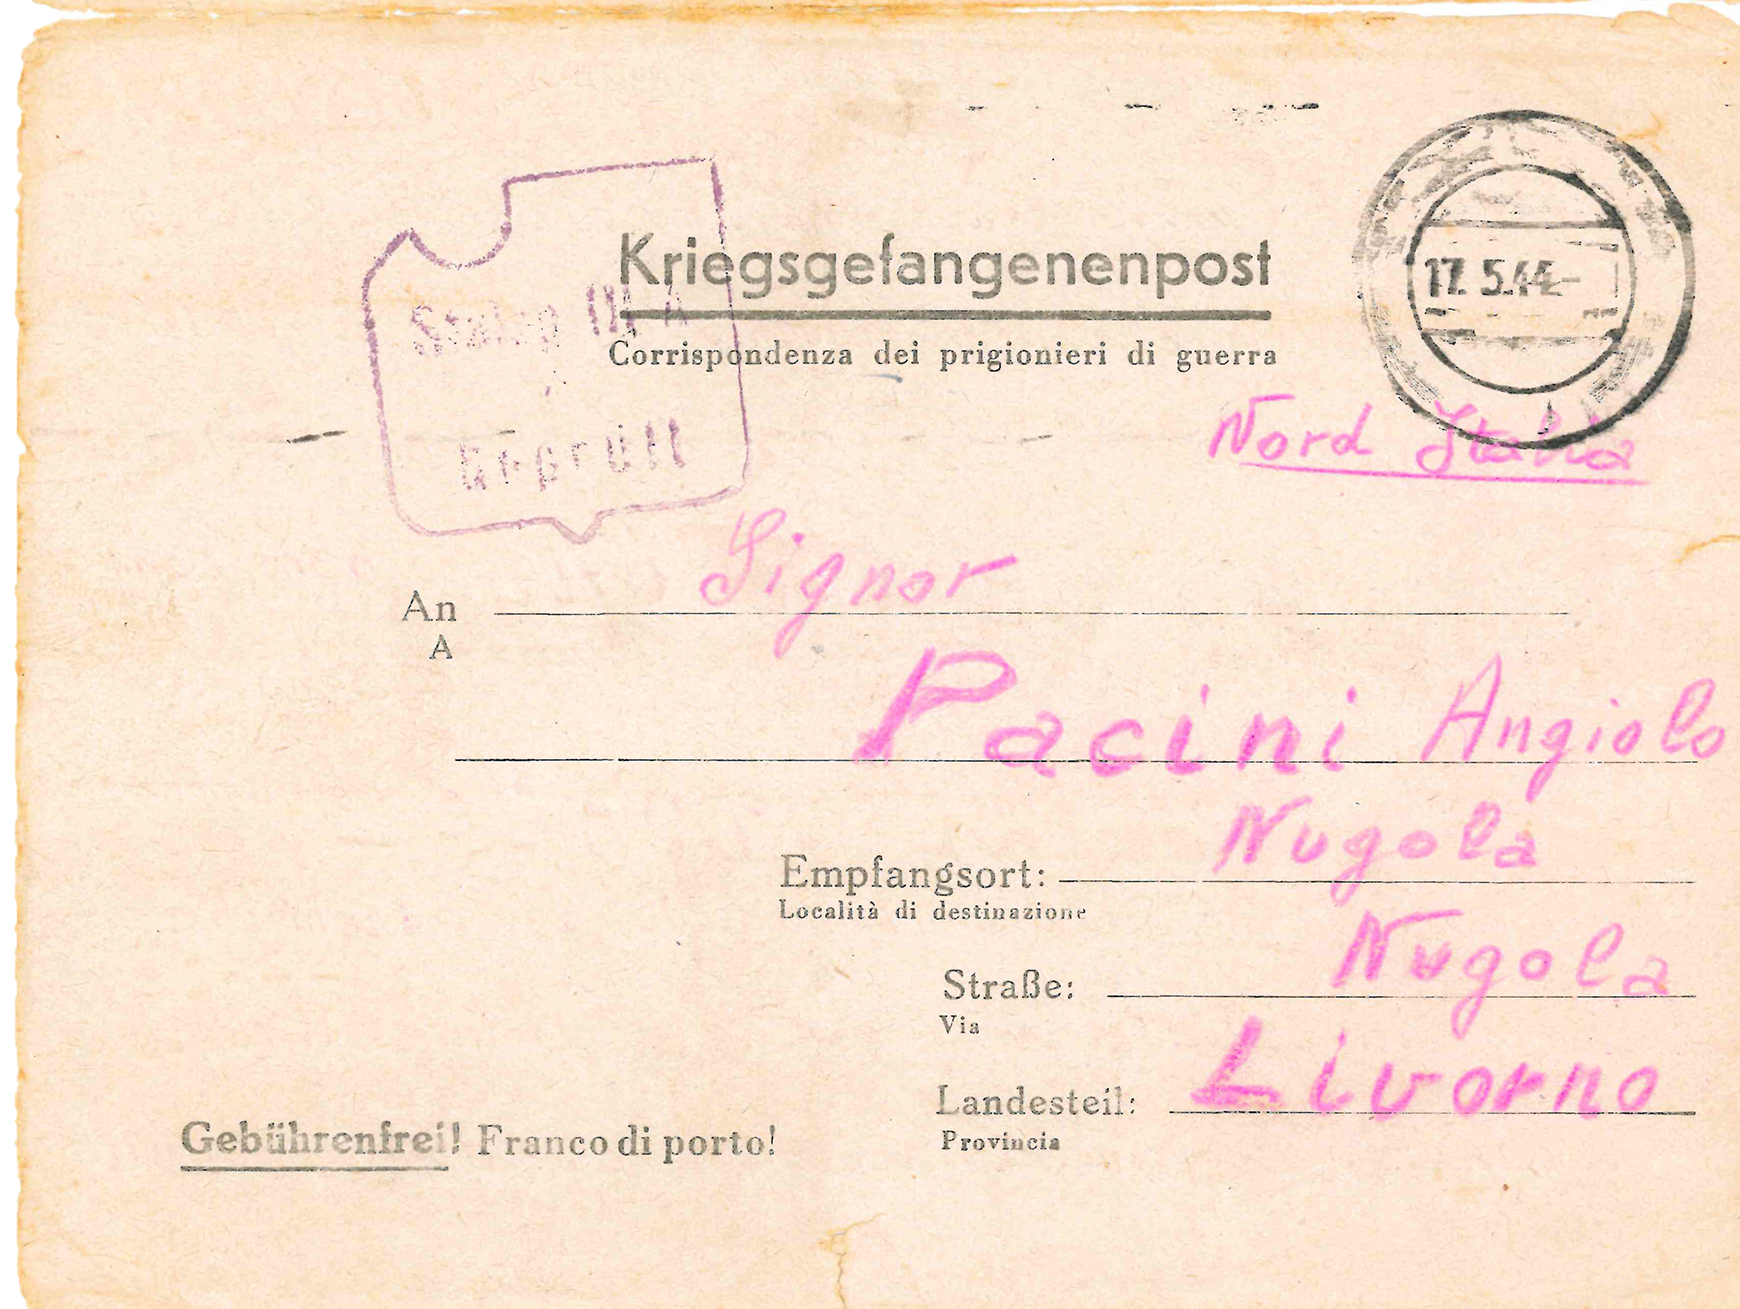 Kriegsgefangenenpost
Corrispondenza dei prigionieri di guerra
Stalag III A
Geprüft
17. 5.44
Nord Italia
An Signor
A
Pacini Angiolo
Empfangsort: Nugola
Località di destinazione
Straße: Nugola
Via
Landesteil: Livorno
Provincia
Gebührenfrei! Franco di porto!